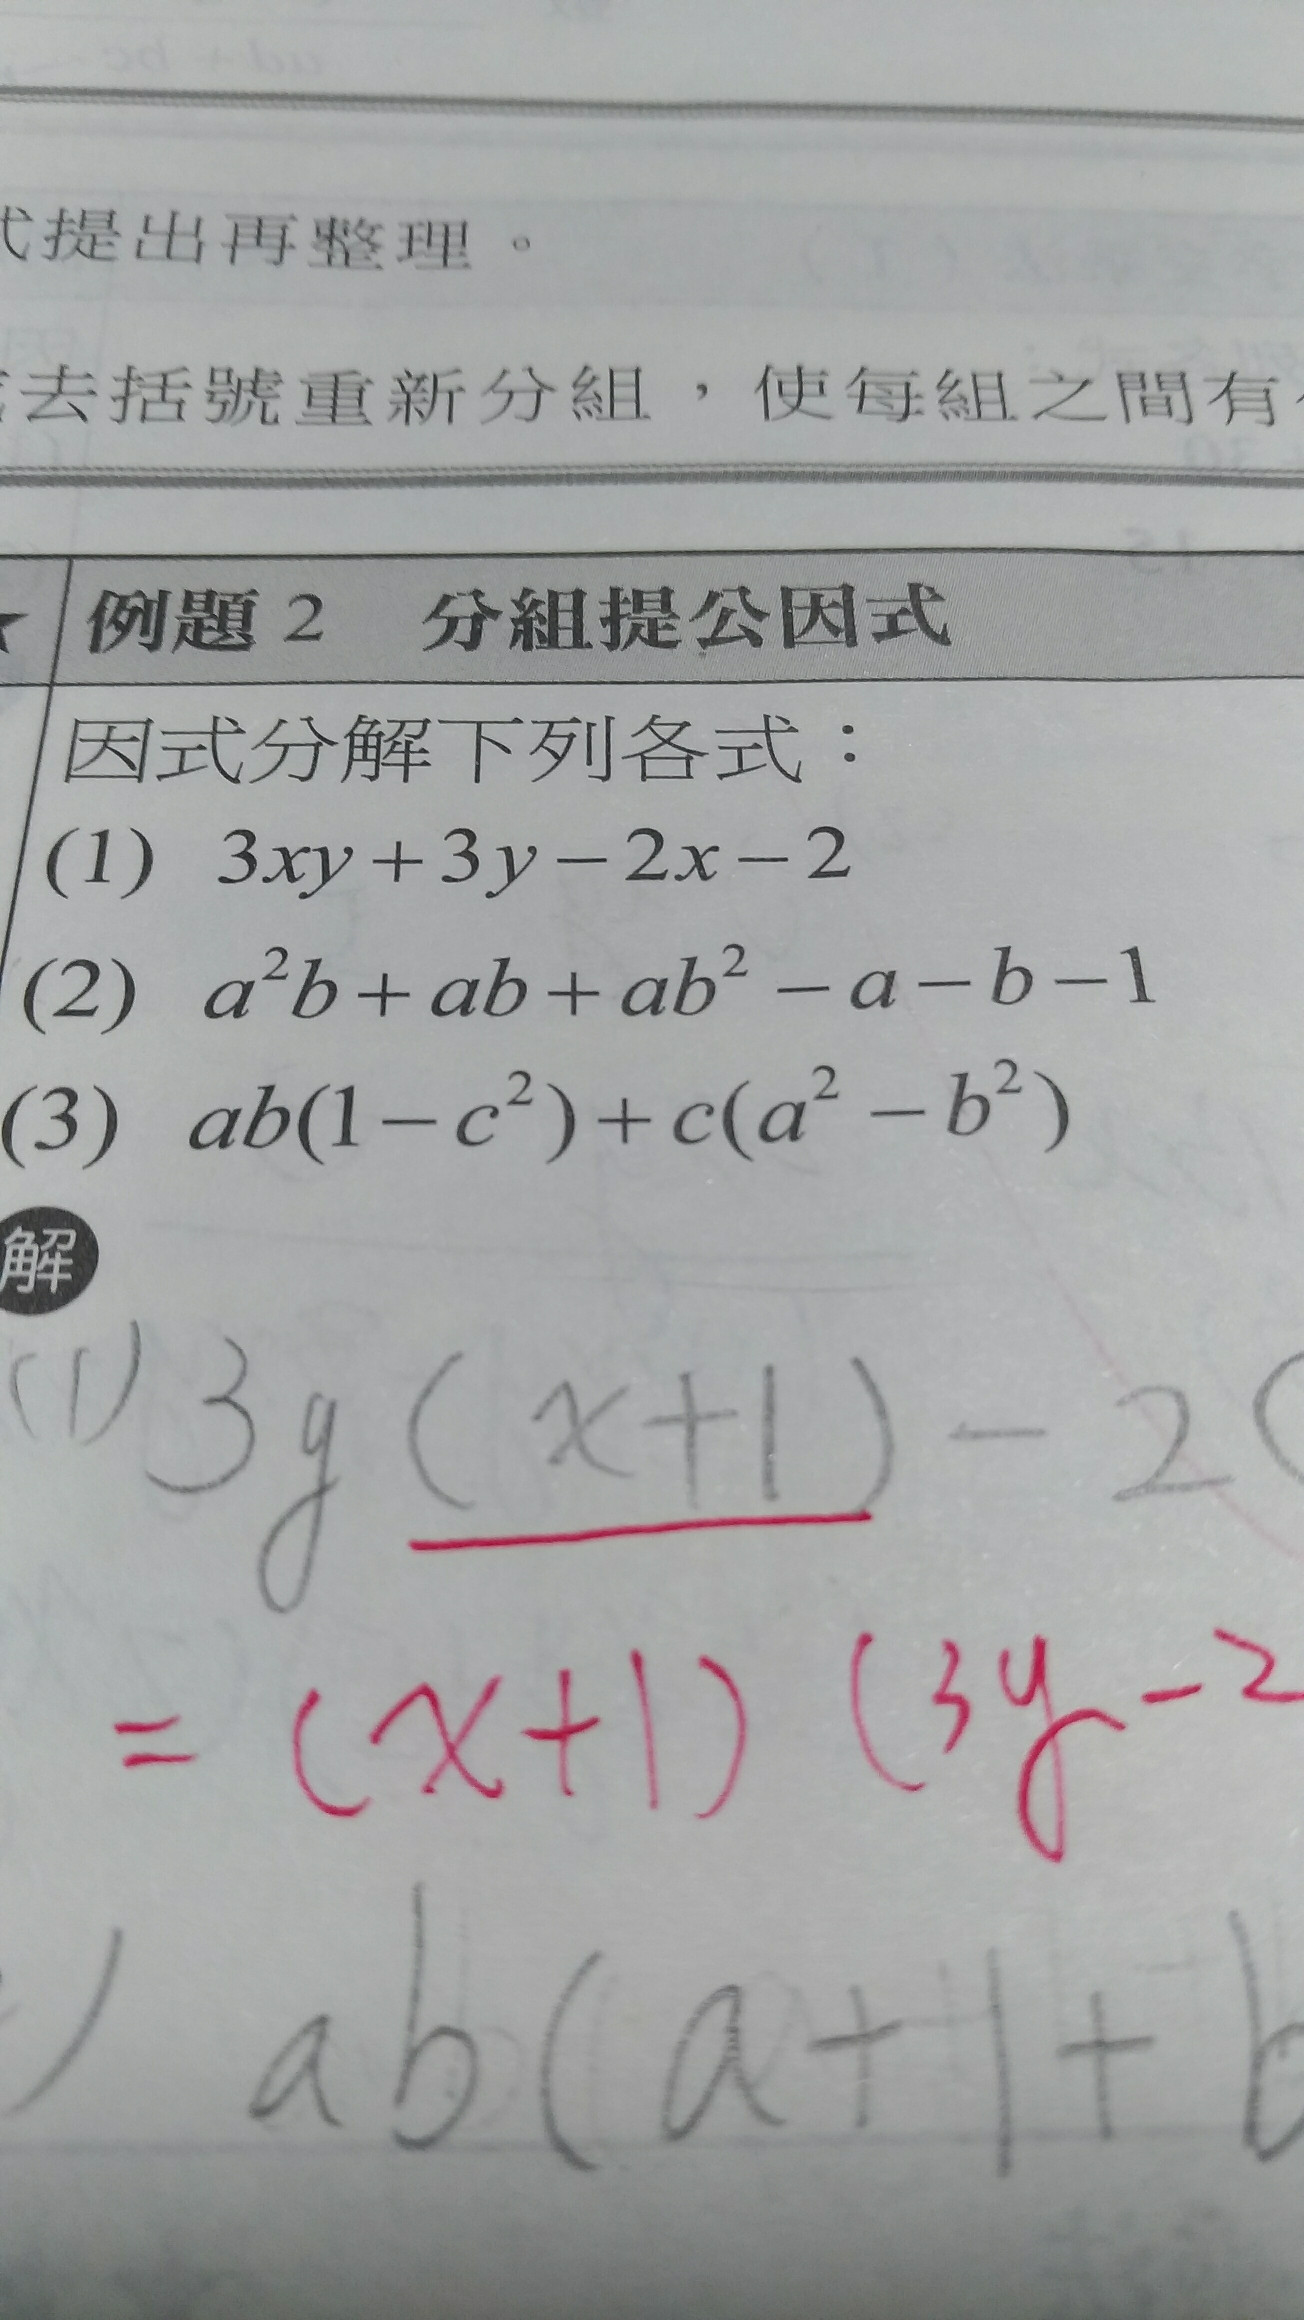 式提出再整理。
去括號重新分組，使每組之間有
例題 2 分組提公因式
因式分解下列各式：
(1) 3xy+3y−2x−2
(2) a²b+ab+ab²−a−b−1
(3) ab(1−c²)+c(a²−b²)
解
(1) 3y(x+1)−2(
=(x+1)(3y−2
) ab(a+1+b